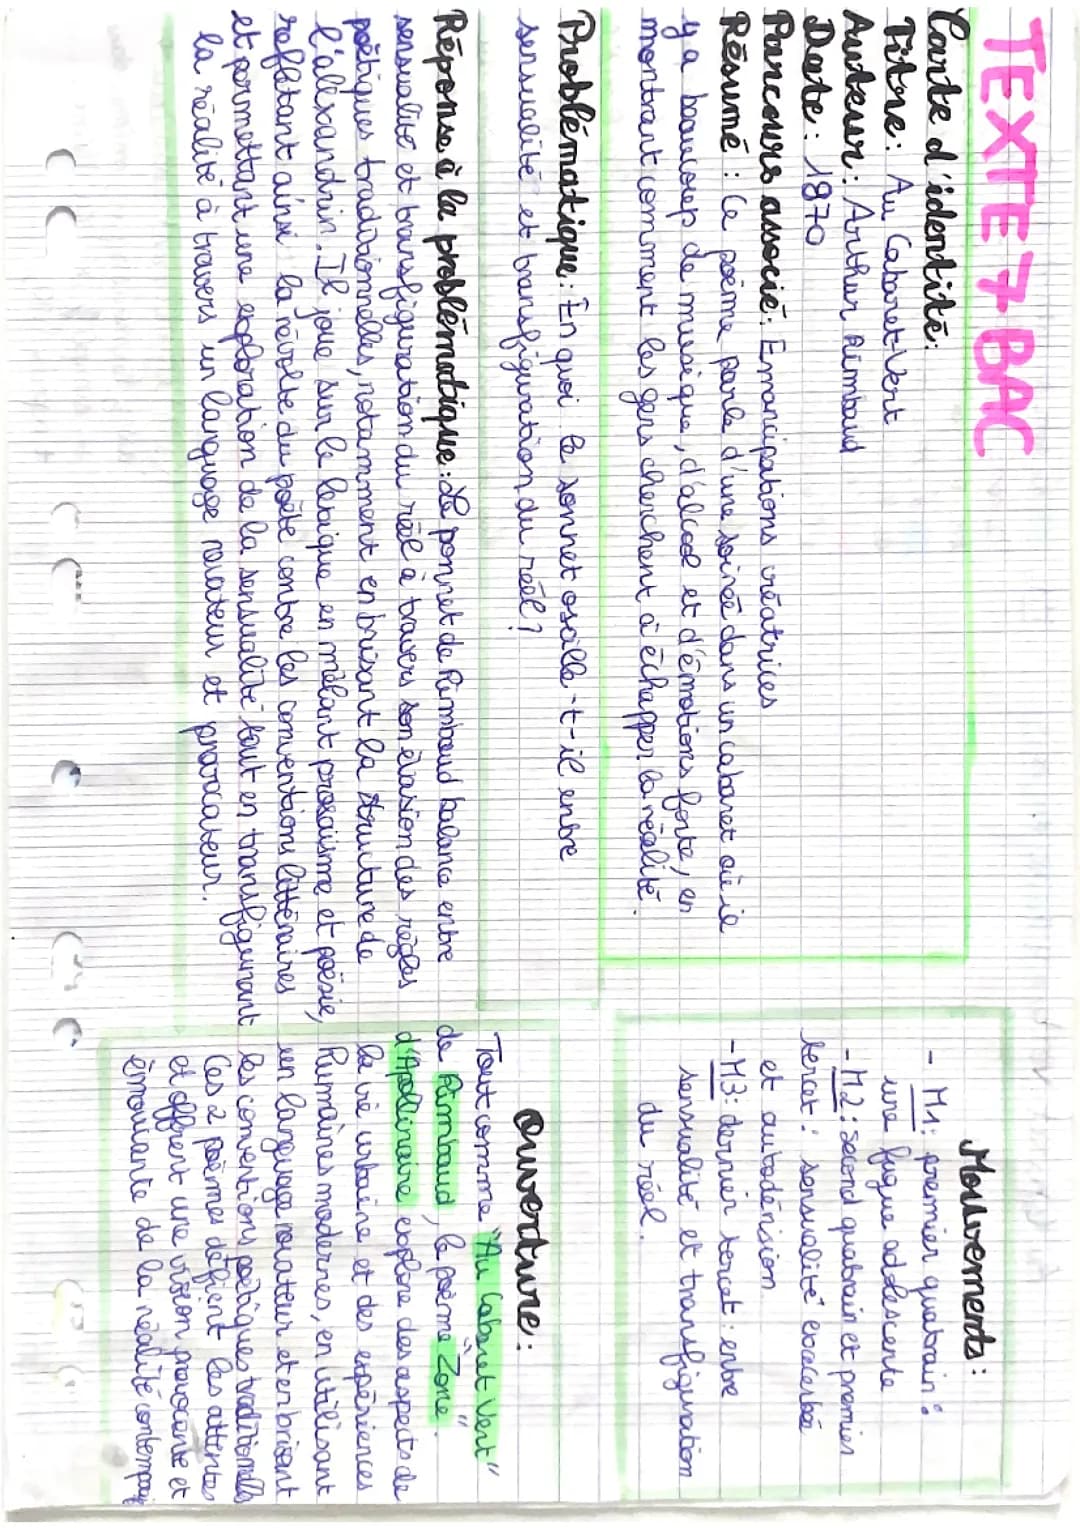 TEXTE 7 BAC
Carte d'identité:
Titre: Au Cabaret-Vert
Auteur: Arthur Rimbaud
Date: 1870
Parcours associé: Emancipations créatrices
Résumé: Ce poème parle d'une soirée dans un cabaret où il
y a beaucoup de musique, d'alcool et d'émotions forte, en
montrant comment les gens cherchent à échapper la réalité.
Problématique: En quoi le sonnet oscille-t-il entre
sensualité et transfiguration du réel?
Réponse à la problématique: Le sonnet de Rimbaud balance entre
sensualité et transfiguration du réel à travers son évasion des règles
poétiques traditionnelles, notamment en brisant la structure de
l'alexandrin. Il joue sur le lexique en mêlant prosaïsme et poésie,
reflétant ainsi la révolte du poète contre les conventions littéraires
et permettant une exploration de la sensualité tout en transfigurant
la réalité à travers un language novateur et provocateur.
Mouvements:
- M1: premier quatrain:
une fugue adolescente
- M2: second quatrain et premier
tercet: sensualité exacerbée
et autodérision
- M3: dernier tercet: entre
sensualité et transfiguration
du réel.
Ouverture:
Tout comme "Au Cabaret Vert"
de Rimbaud, le poème "Zone"
d'Apollinaire explore des aspects de
la vie urbaine et des expériences
humaines modernes, en utilisant
un language novateur et en brisant
les conventions poétiques traditionnelles
Ces 2 poèmes défient les attentes
et offrent une vision provocante et
émouvante de la réalité contempo